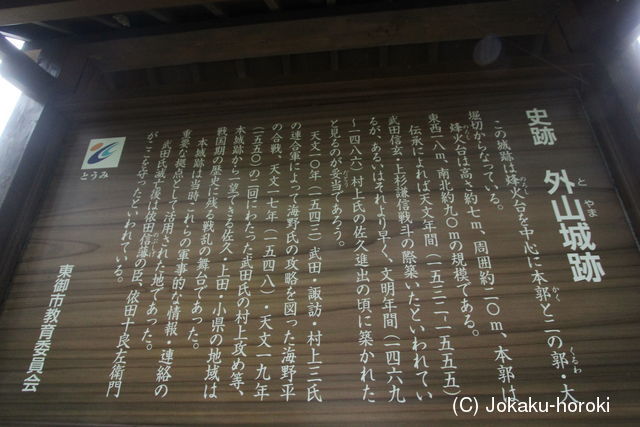 史跡　外山城跡
とやま
この城跡は烽火台を中心に本郭と二の郭・大
かく　くるわ
堀切からなっている。
烽火台は高さ約七m、周囲約二〇m、本郭は
東西一八m、南北約九〇mの規模である。
伝承によれば天文年間（一五三二～一五五五）
武田信玄・上杉謙信戦斗の際築いたといわれてい
るが、あるいはそれより早く、文明年間（一四六九
～一四八六）村上氏の佐久進出の頃に築かれた
と見るのが妥当であろう。
天文一〇年（一五四一）武田・諏訪・村上三氏
の連合軍によって海野氏の攻略を図った海野平
の合戦、天文一七年（一五四八）・天文一九年
（一五五〇）の二回にわたった武田氏の村上攻め等、
本城跡から一望できる佐久・上田・小県の地域は
戦国期の歴史に残る戦乱の舞台であった。
本城跡は当時これらの軍事的な情報・連絡の
重要な拠点として活用された地であった。
武田氏滅亡後は依田信蕃の臣、依田十良左衛門
がここを守ったといわれている。
東御市教育委員会
とうみ
(C) Jokaku-horoki